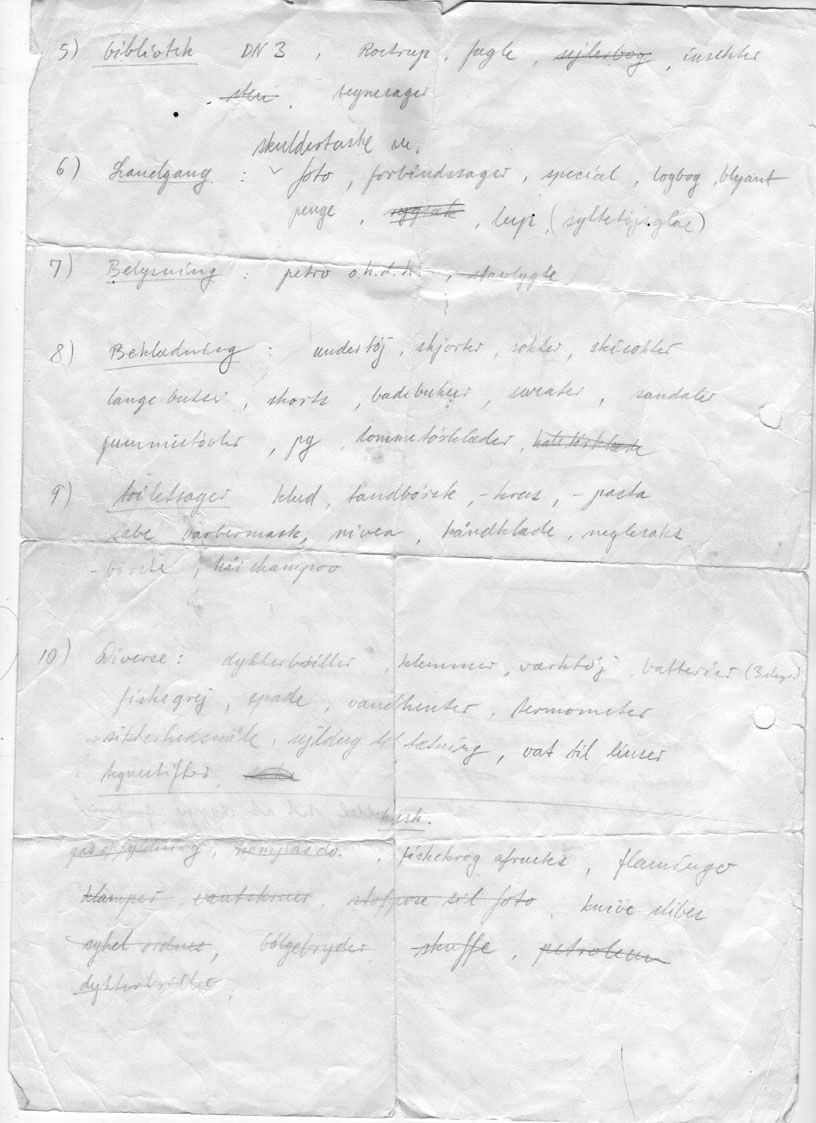 5) bibliotek DN3, Rostrup, fugle, sejlerbog, insekter
, sten, tegnesager
skuldertaske m.
6) Landgang : foto, forbindssager, special, logbog, blyant
penge, rygsæk, lup, (syltetøjsglas)
7) Belysning : petro o.h.d.h., stavlygte
8) Beklædning : undertøj, skjorter, sokker, skisokker
lange buxser, shorts, badebukser, sweater, sandaler
gummistøvler, py lommetørklæder, halstørklæde
9) toiletsager klud, tandbørste, -krus, -pasta
sæbe barbermask, nivea, håndklæde, neglesaks
- børste, hårshampoo
10) Diverse : dykkerbriller, klemmer, værktøj, batterier
fiskegrej, spade, vandhenter, termometer
sikkerhedsnåle, sejldug til tætning, vat til linser
tegnestifter
husk.
gasopfyldning, kompasdo., fiskekrog afrucks, flamingo
klamper, vantskruer, stofpose til foto, knive slibes
cykel ordnes, bølgebryder, skuffe, petroleum
dykkerbriller,